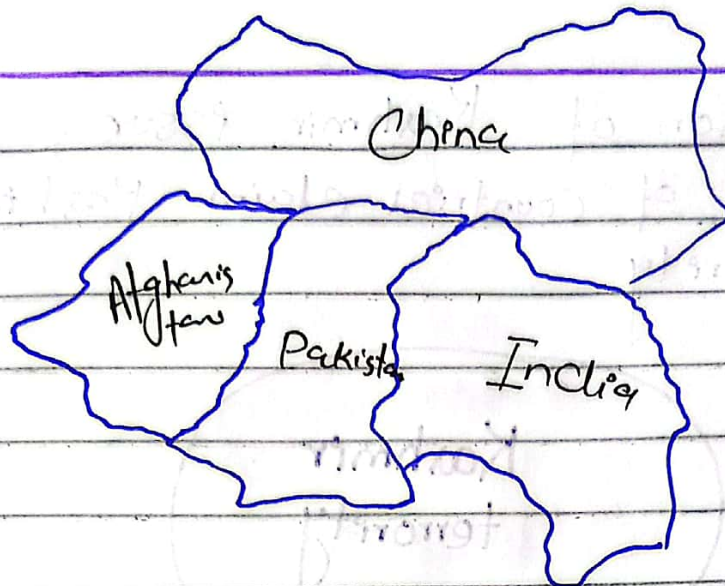 China
Afghanis
tan
Pakistan
India